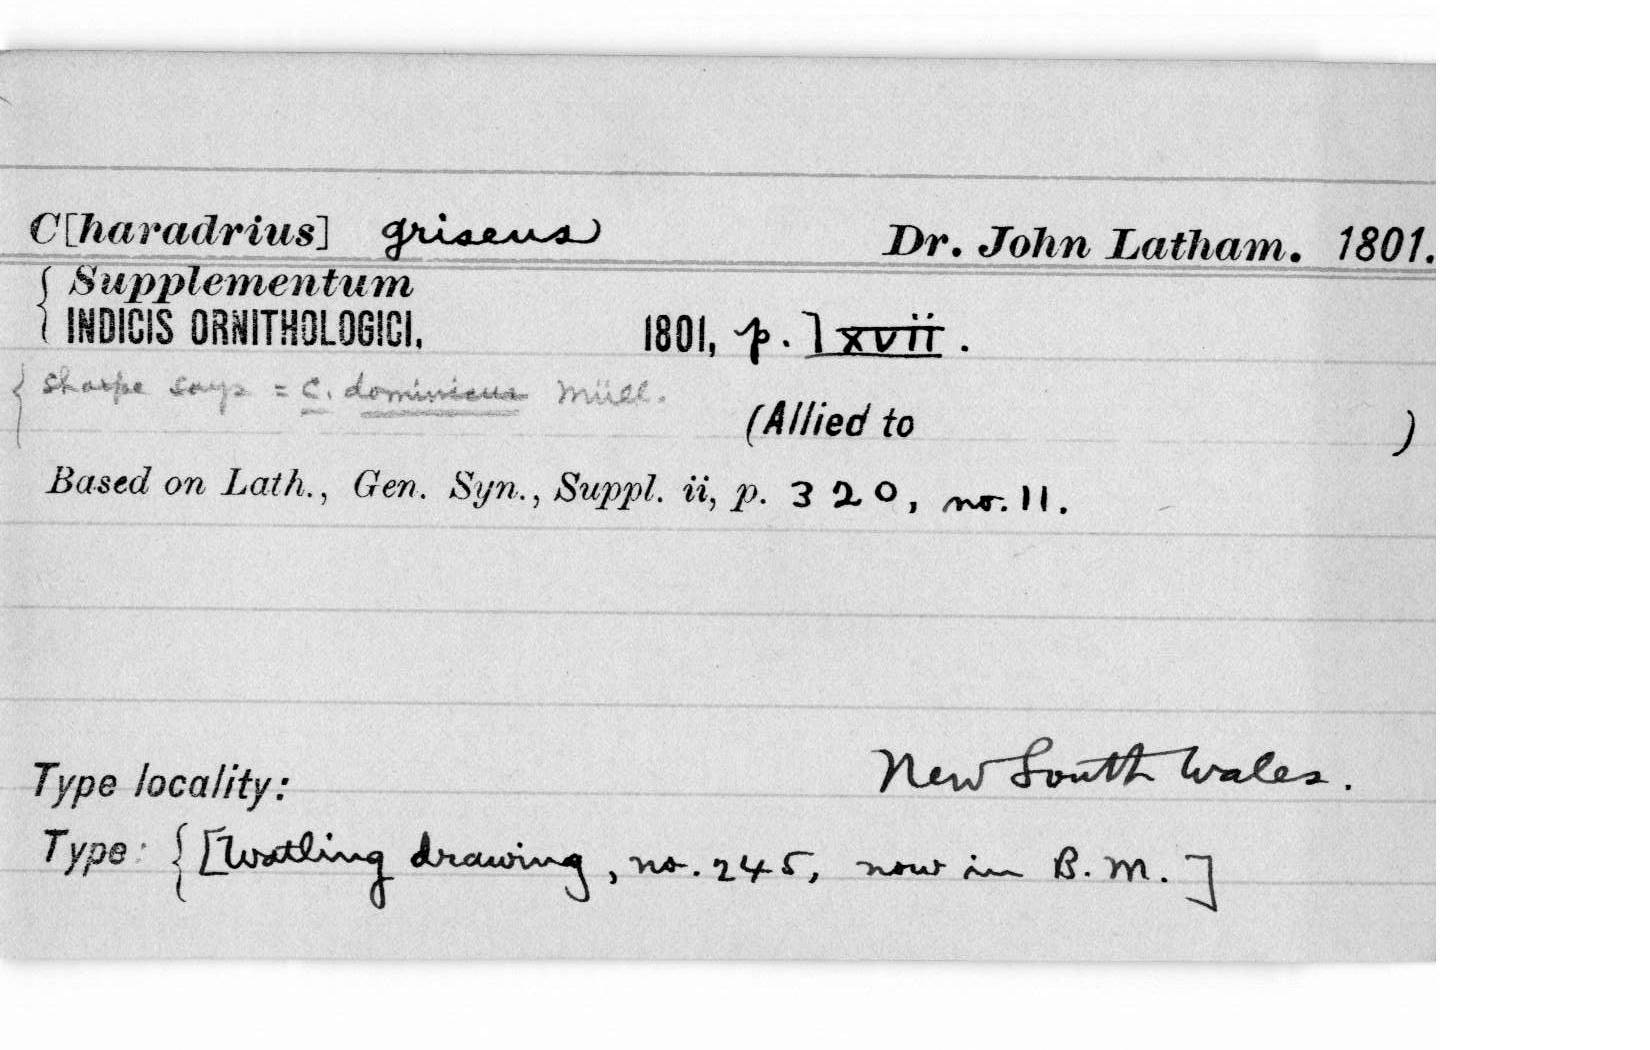 C[haradrius] griseus Dr. John Latham. 1801.
{ Supplementum
{ INDICIS ORNITHOLOGICI, 1801, p. lxvii.
{ Sharpe says = C. dominicus Müll.
(Allied to )
Based on Lath., Gen. Syn., Suppl. ii, p. 320, no. 11.
Type locality: New South Wales.
Type: { [Watling drawing, no. 245, now in B. M.]